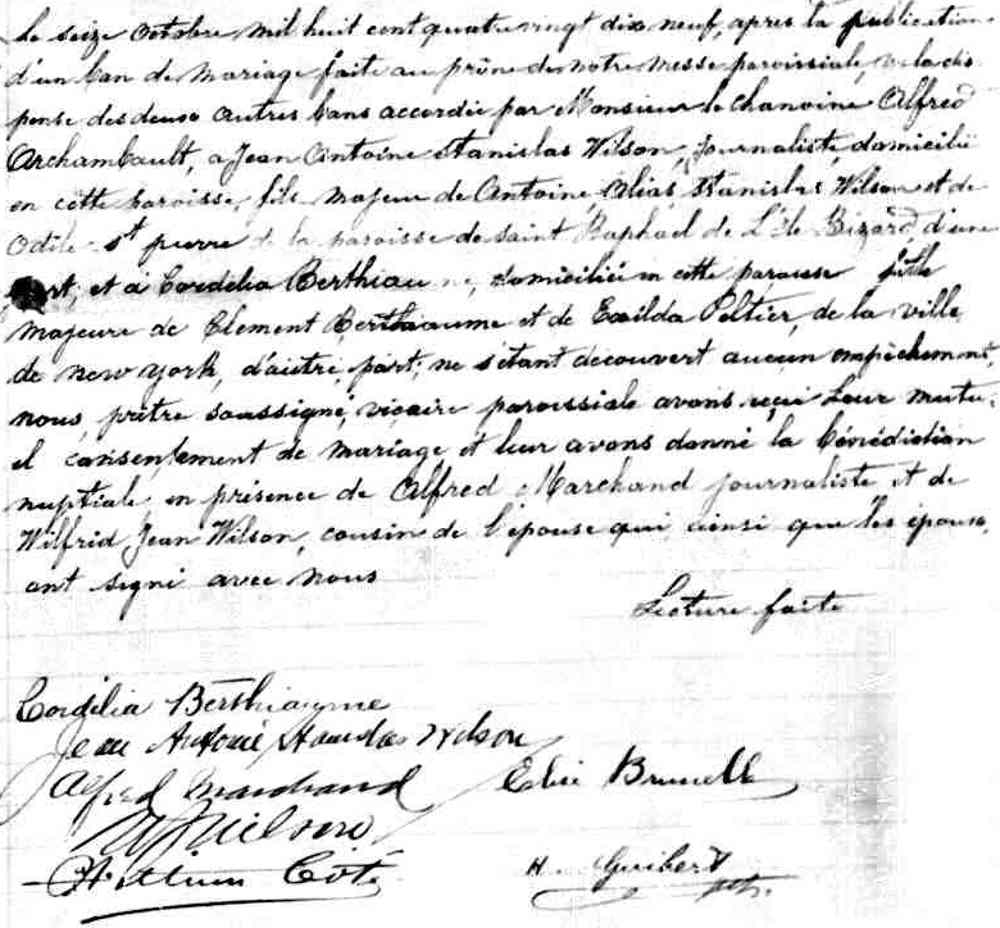 Le seize Octobre mil huit cent quatre vingt dix neuf, après la publication
d'un ban de mariage faite au prône de notre messe paroissiale, vu la dis
pense des deux autres bans accordée par Monsieur le chanoine Alfred
Archambault, a Jean Antoine Stanislas Wilson, journaliste, domicilié
en cette paroisse, fils majeur de Antoine, Alias, Stanislas Wilson et de
Odile St pierre de la paroisse de Saint Raphael de L'ile Bizard, d'une
part, et à Cordélia Berthiau ne, domiciliée en cette paroisse fille
majeure de Clement Berthiaume et de Exilda Peltier, de la ville
de new york, d'autre part; ne s'étant découvert aucun empêchement,
nous, prêtre soussigné, vicaire paroissiale avons reçu Leur mutu-
el consentement de mariage et leur avons donné la bénédiction
nuptiale en présence de Alfred Marchand journaliste et de
Wilfrid Jean Wilson, cousin de l'épouse qui ainsi que les époux,
ont signé avec nous
Lecture faite
Cordélia Berthiaume
Jean Antoine Stanislas Wilson
Alfred Marchand
Brunelle
Wilson
Côté
H Guibert
ptr.